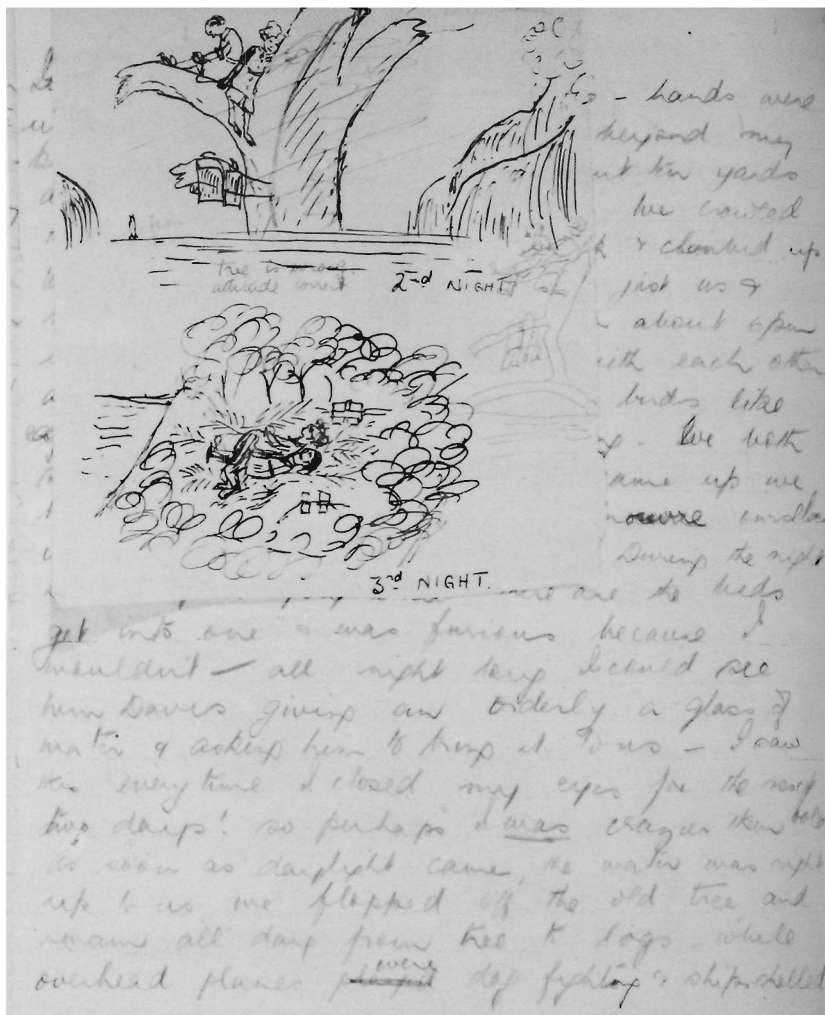 - hands were
beyond my
ten yards
We crawled
& climbed up
tree is wrong
attitude correct
2nd NIGHT
just us &
about open
with each other
birds like
We both
came up we
During the night
3rd NIGHT.
are the beds
get into one & was furious because I
wouldn't — all night long I could see
him Davis giving an orderly a glass of
water & asking him to bring it to us — I saw
this everytime I closed my eyes for the next
two days! so perhaps I was crazier than
As soon as daylight came, the water was right
up to us we flopped off the old tree and
swam all day from tree to logs while
overhead planes were dog fighting & ships shelled